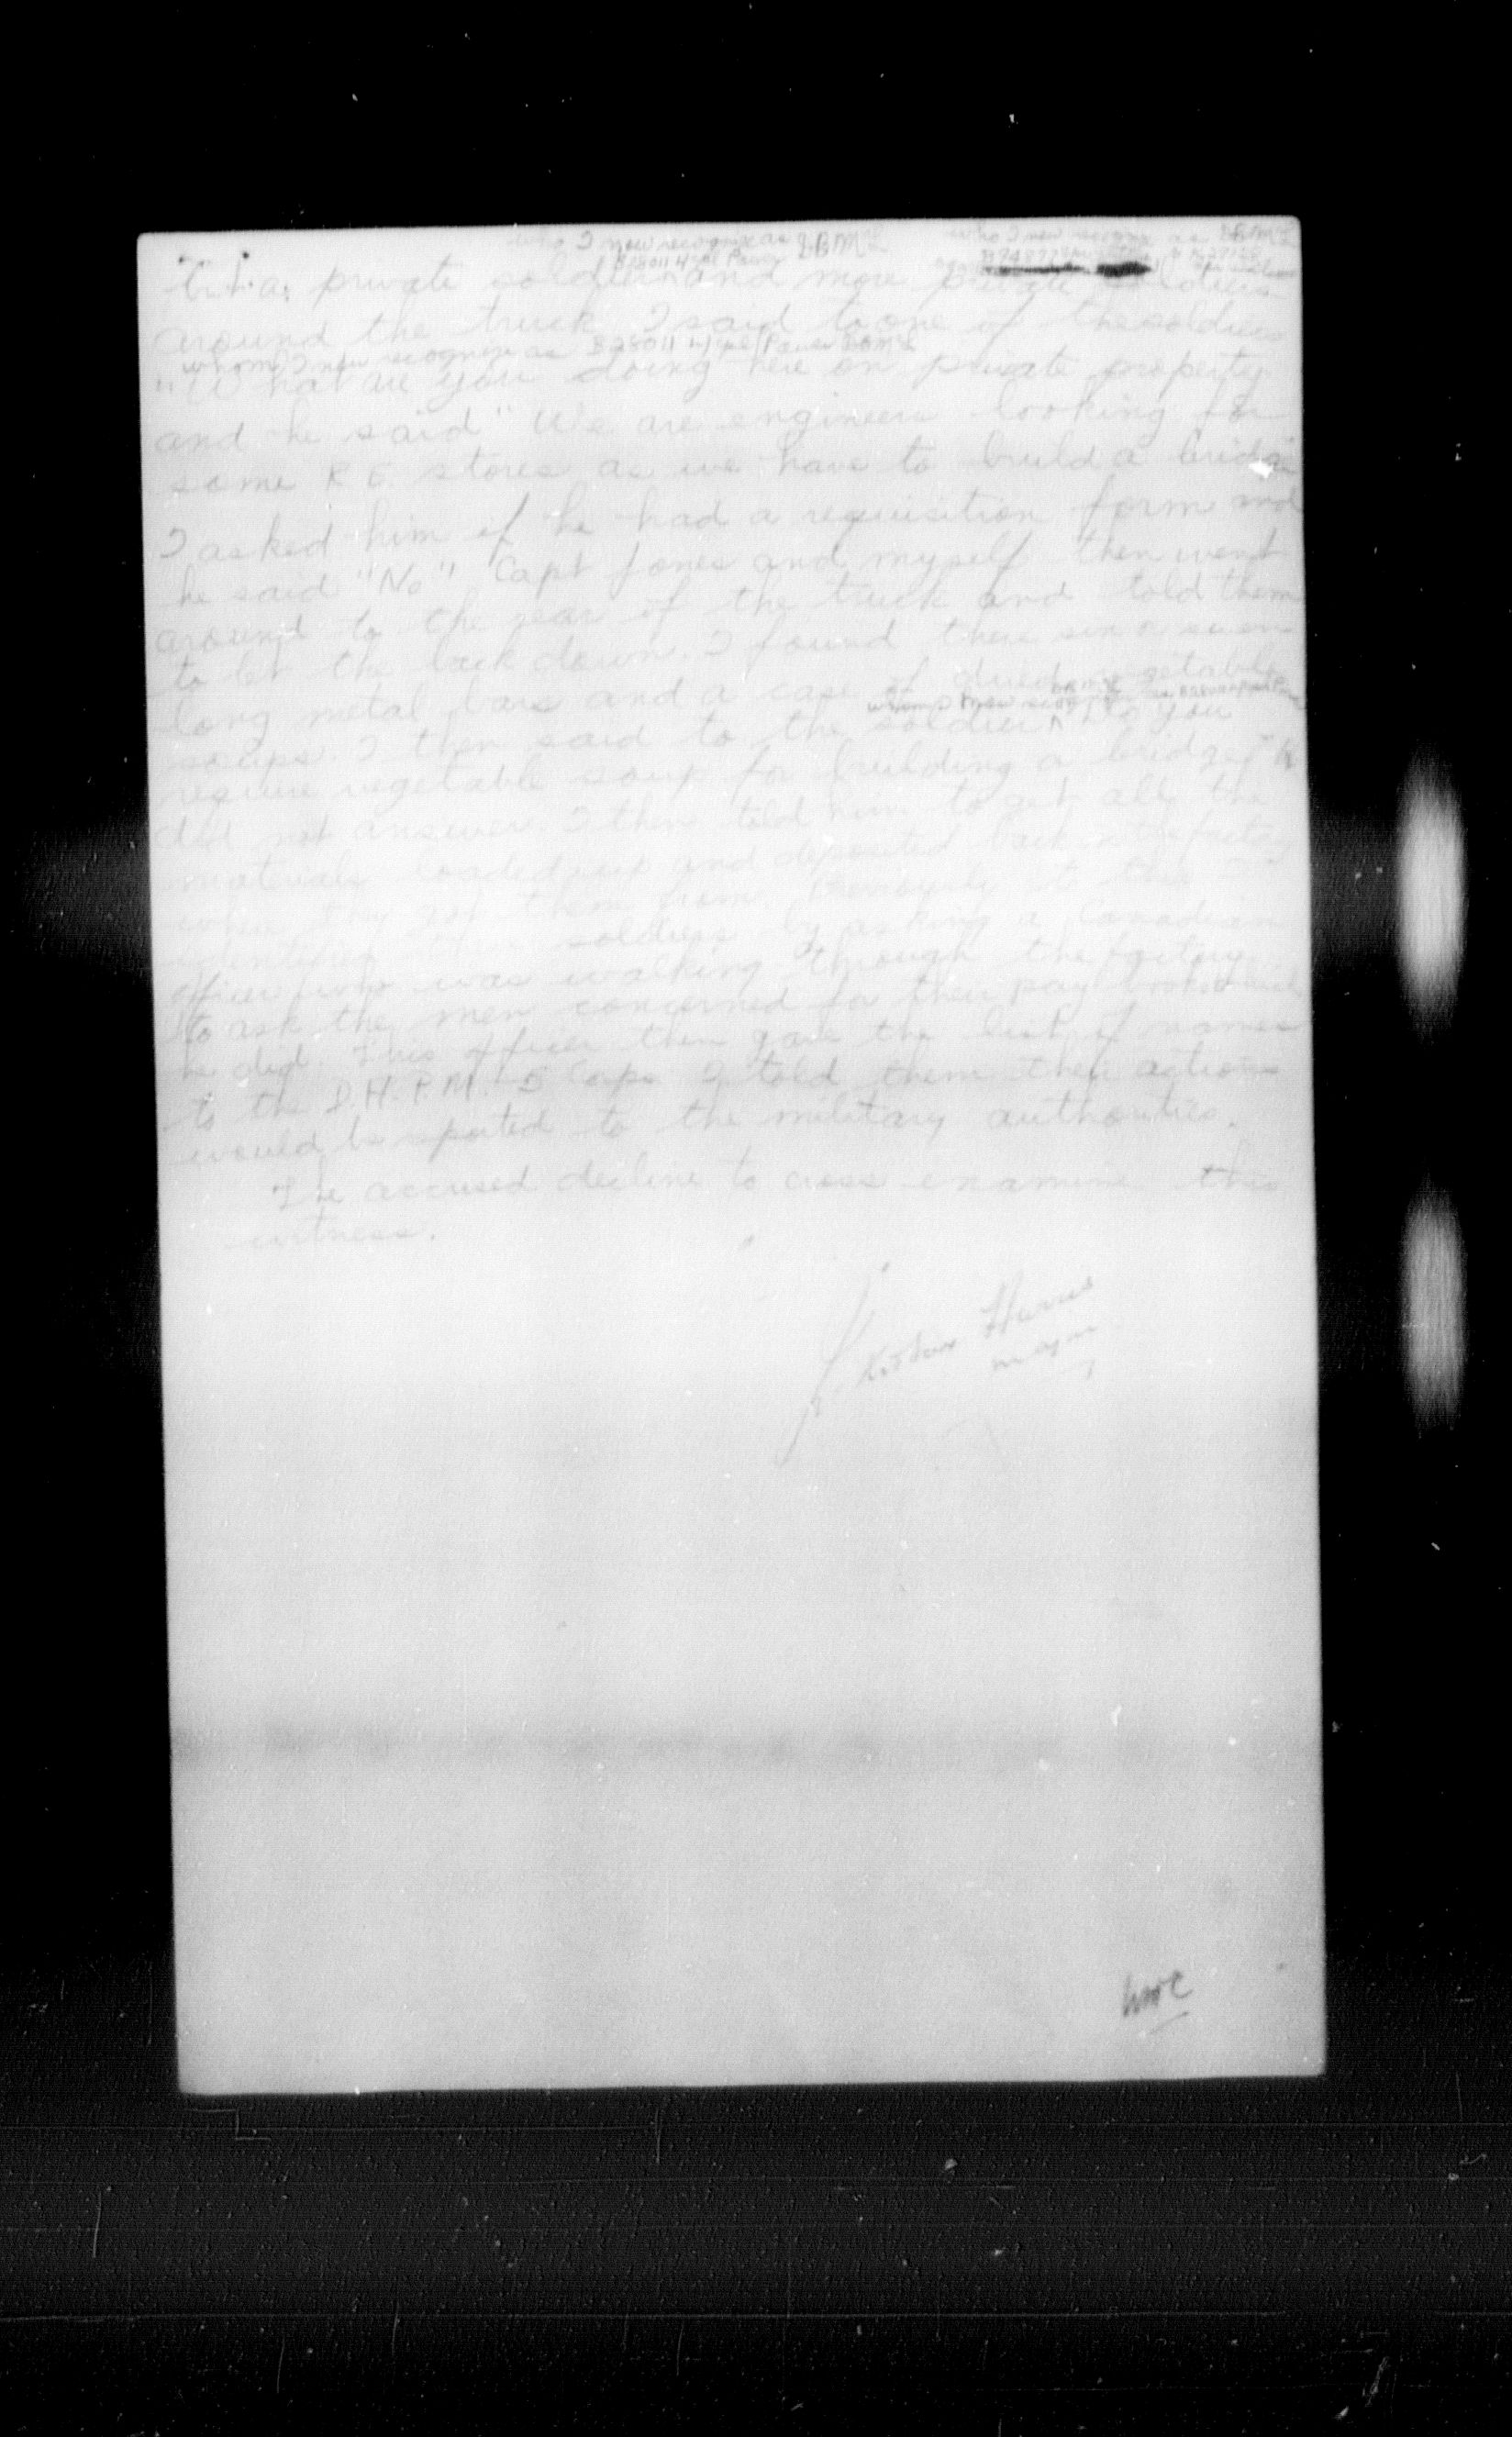 who I now recognize as who I now recognize as
B28011 H/Cpl Power
a private soldier and more private soldiers
around the truck. I said to one of the soldiers
whom I now recognize as B28011 H/Cpl Power
"What are you doing here on private property
and he said "We are engineers looking for
some R E stores as we have to build a bridge"
I asked him if he had a requisition form and
he said "No" Capt Jones and myself then went
around to the rear of the truck and told them
to let the back down. I found there six or seven
long metal bars and a case of dried vegetable
whom I now recognize as
soups. I then said to the soldier "Do you
require vegetable soup for building a bridge"
did not answer. I then told him to get all the
materials loaded up and deposited back in the factory
where they got them from. Previously to this I
identified these soldiers by asking a Canadian
officer who was walking through the factory
to ask the men concerned for their pay books which
he did. This officer then gave the list of names
to the D.A.P.M. 5 Corps I told them their actions
would be reported to the military authorities.
The accused decline to cross examine this
witness.
Harris
major